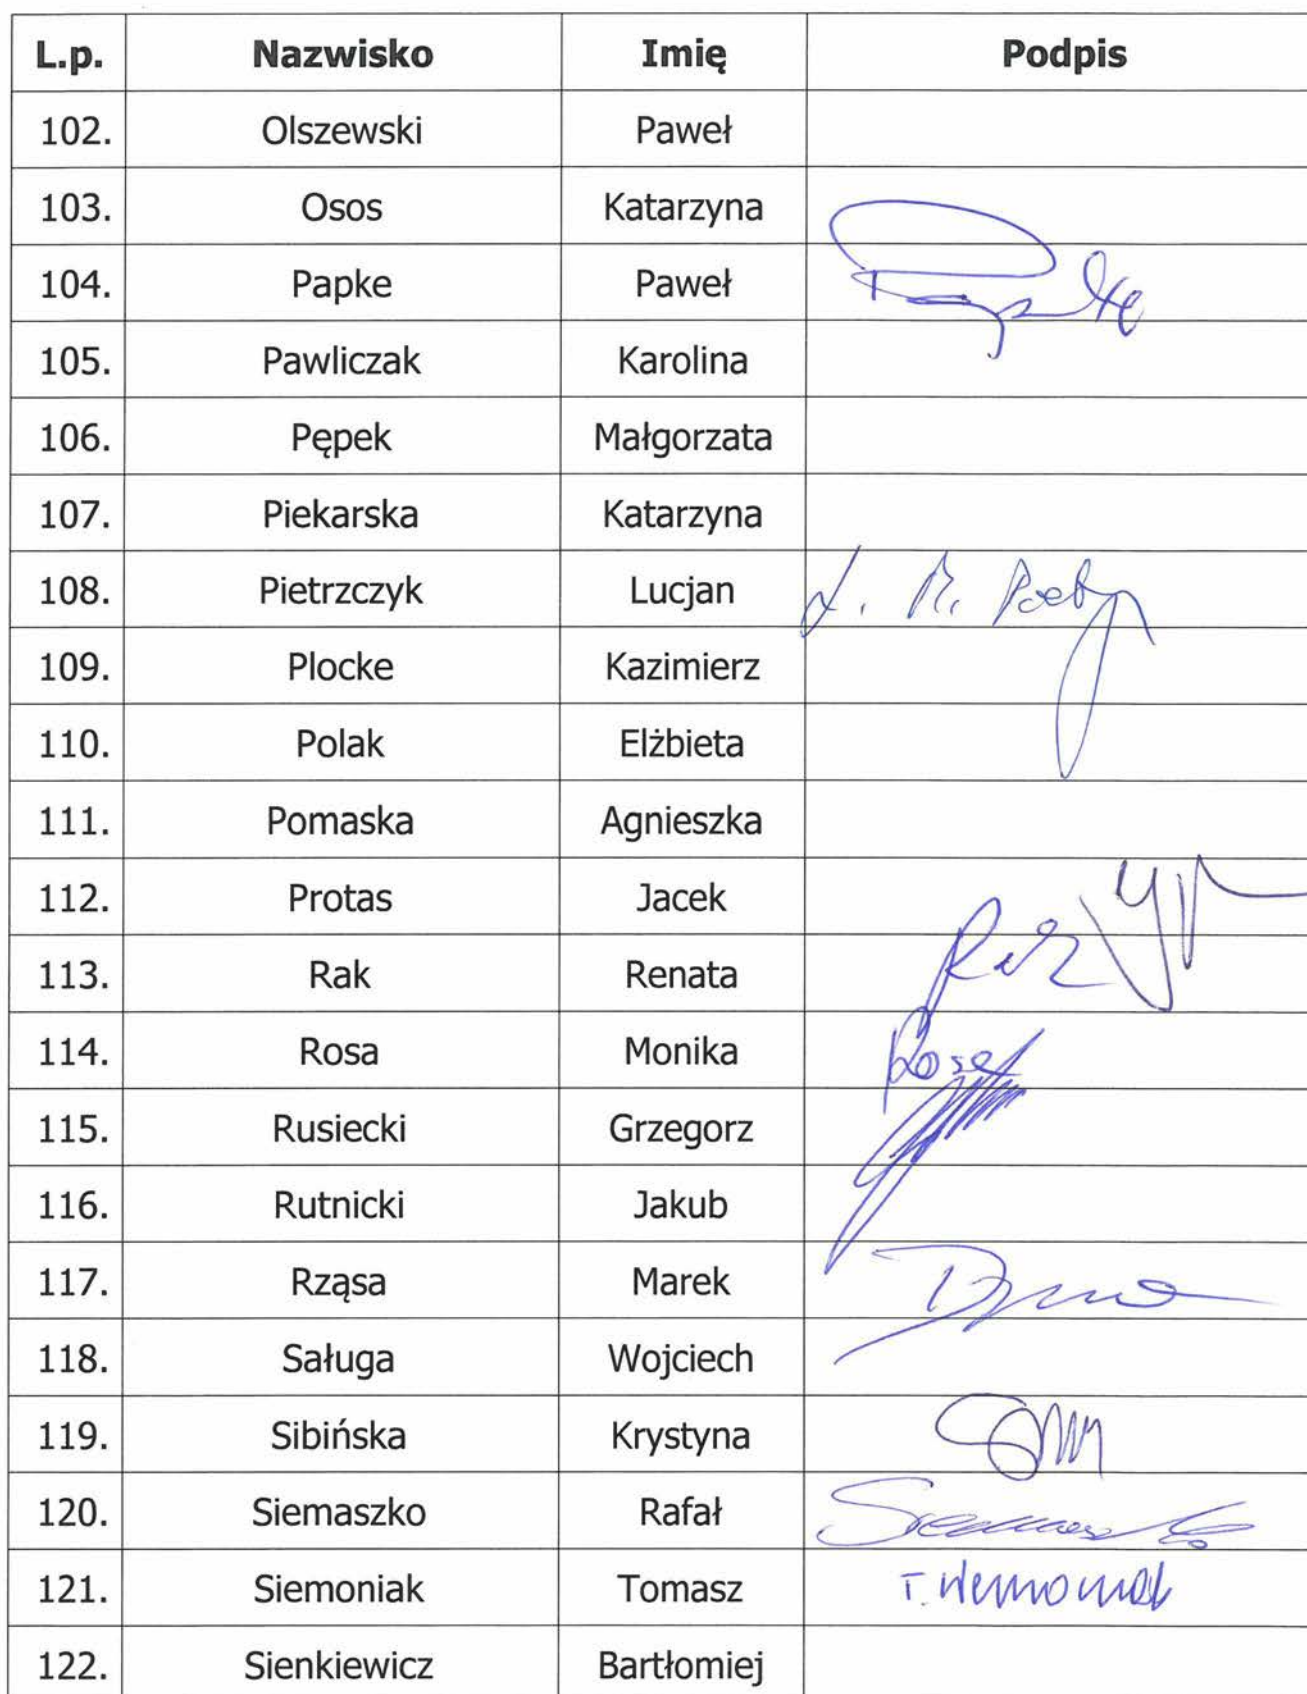 L.p. Nazwisko Imię Podpis
102. Olszewski Paweł
103. Osos Katarzyna
104. Papke Paweł
105. Pawliczak Karolina
106. Pępek Małgorzata
107. Piekarska Katarzyna
108. Pietrzczyk Lucjan
109. Plocke Kazimierz
110. Polak Elżbieta
111. Pomaska Agnieszka
112. Protas Jacek
113. Rak Renata
114. Rosa Monika Rosa
115. Rusiecki Grzegorz
116. Rutnicki Jakub
117. Rząsa Marek
118. Saługa Wojciech
119. Sibińska Krystyna
120. Siemaszko Rafał Siemaszko
121. Siemoniak Tomasz T. Siemoniak
122. Sienkiewicz Bartłomiej